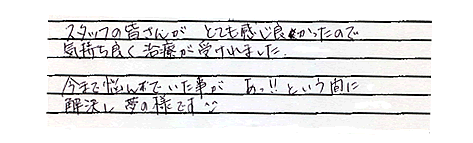 スタッフの皆さんが とても感じ良かったので
気持ち良く治療が受けれました.
今まで悩んでいた事が あっ!!という間に
解決し 夢の様です